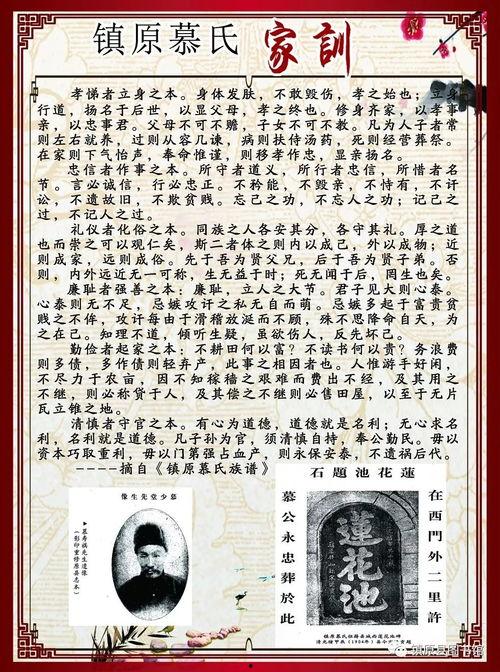 镇原慕氏 家訓
孝悌者立身之本。身体发肤，不敢毁伤，孝之始也；立身
行道，扬名于后世，以显父母，孝之终也。修身齐家，以孝事
亲，以忠事君。父母不可不赡，子女不可不教。凡为人子者常
则左右就养，过则从容几谏，病则扶侍汤药，死则经营葬祭。
在家则下气怡声，奉命惟谨，则移孝作忠，显亲扬名。
忠信者作事之本。所守者道义，所行者忠信，所惜者名
节。言必诚信，行必忠正。不矜能，不毁亲，不恃有，不讦
讼，不遗故旧，不欺贫贱。忘己之功，不忘人之功；记己之
过，不记人之过。
礼仪者化俗之本。同族之人各安其分，各守其礼。厚之道
也而崇之可以观仁矣，斯二者体之则内以成己，外以成物；近
则成家，远则成俗。先于吾为贤父兄，后于吾为贤子弟。否
则，内外远近无一可称，生无益于时；死无闻于后，罔生也矣。
廉耻者强善之本：廉耻，立人之大节。君子见大则心泰。
心泰则无不足，忌嫉攻讦之私无自而萌。忌嫉多起于富贵贫
贱之不侔，攻讦每由于滑稽放涎而不顾，殊不思降命自天，为
之在己。知理不道，倾听生疑，虽欲伤人，反先坏己。
勤俭者起家之本：不耕田何以富？不读书何以贵？务浪费
则多债，多作债则轻弃产，此事之相因者也。人惟游手好闲，
不尽力于农亩，因不知稼穑之艰难而费出不经，及其用之
不继，则必称贷于人，及其偿之不继则必售田屋，以至于无片
瓦立锥之地。
清慎者守官之本。有心为道德，道德就是名利；无心求名
利，名利就是道德。凡子孙为官，须清慎自持，奉公勤民。毋以
资本巧取重利，毋以门第强占血产，则永保安泰，不遗祸后代。
----摘自《镇原慕氏族谱》
像生先堂少慕
▲慕寿祺先生遗像
（影印重修原县志本）
石題池花蓮
在西門外二里許
慕公永忠葬於此
蓮花池
镇原慕氏祖籍县城西莲花池碑
镇原县图书馆